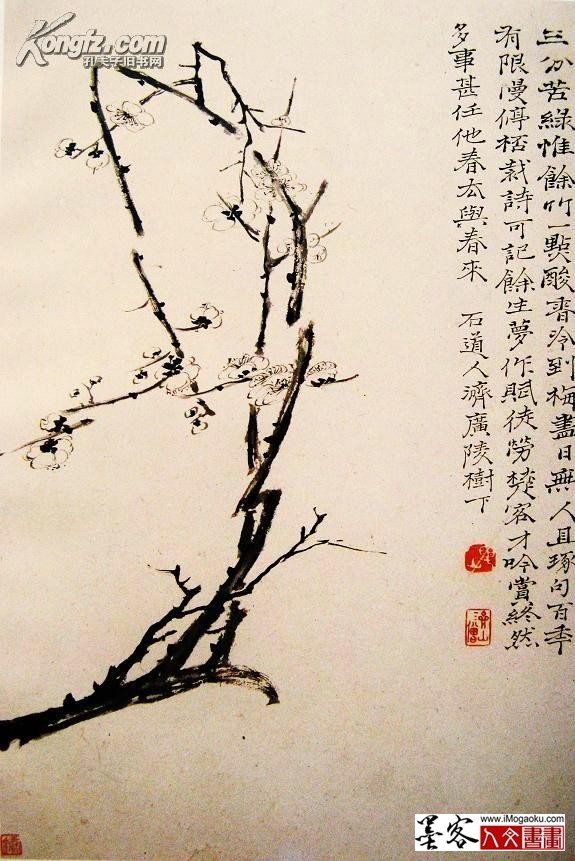 Kongfz.com
孔夫子旧书网
三分苦綠惟餘竹一點酸香冷到梅盡日無人且琢句百年
有限慢停桮裁詩可記餘生夢作賦徒勞楚客才吟賞終然
多事甚任他春去與春來 石道人濟廣陵樹下
www.iMogaoku.com
墨客人文書畫